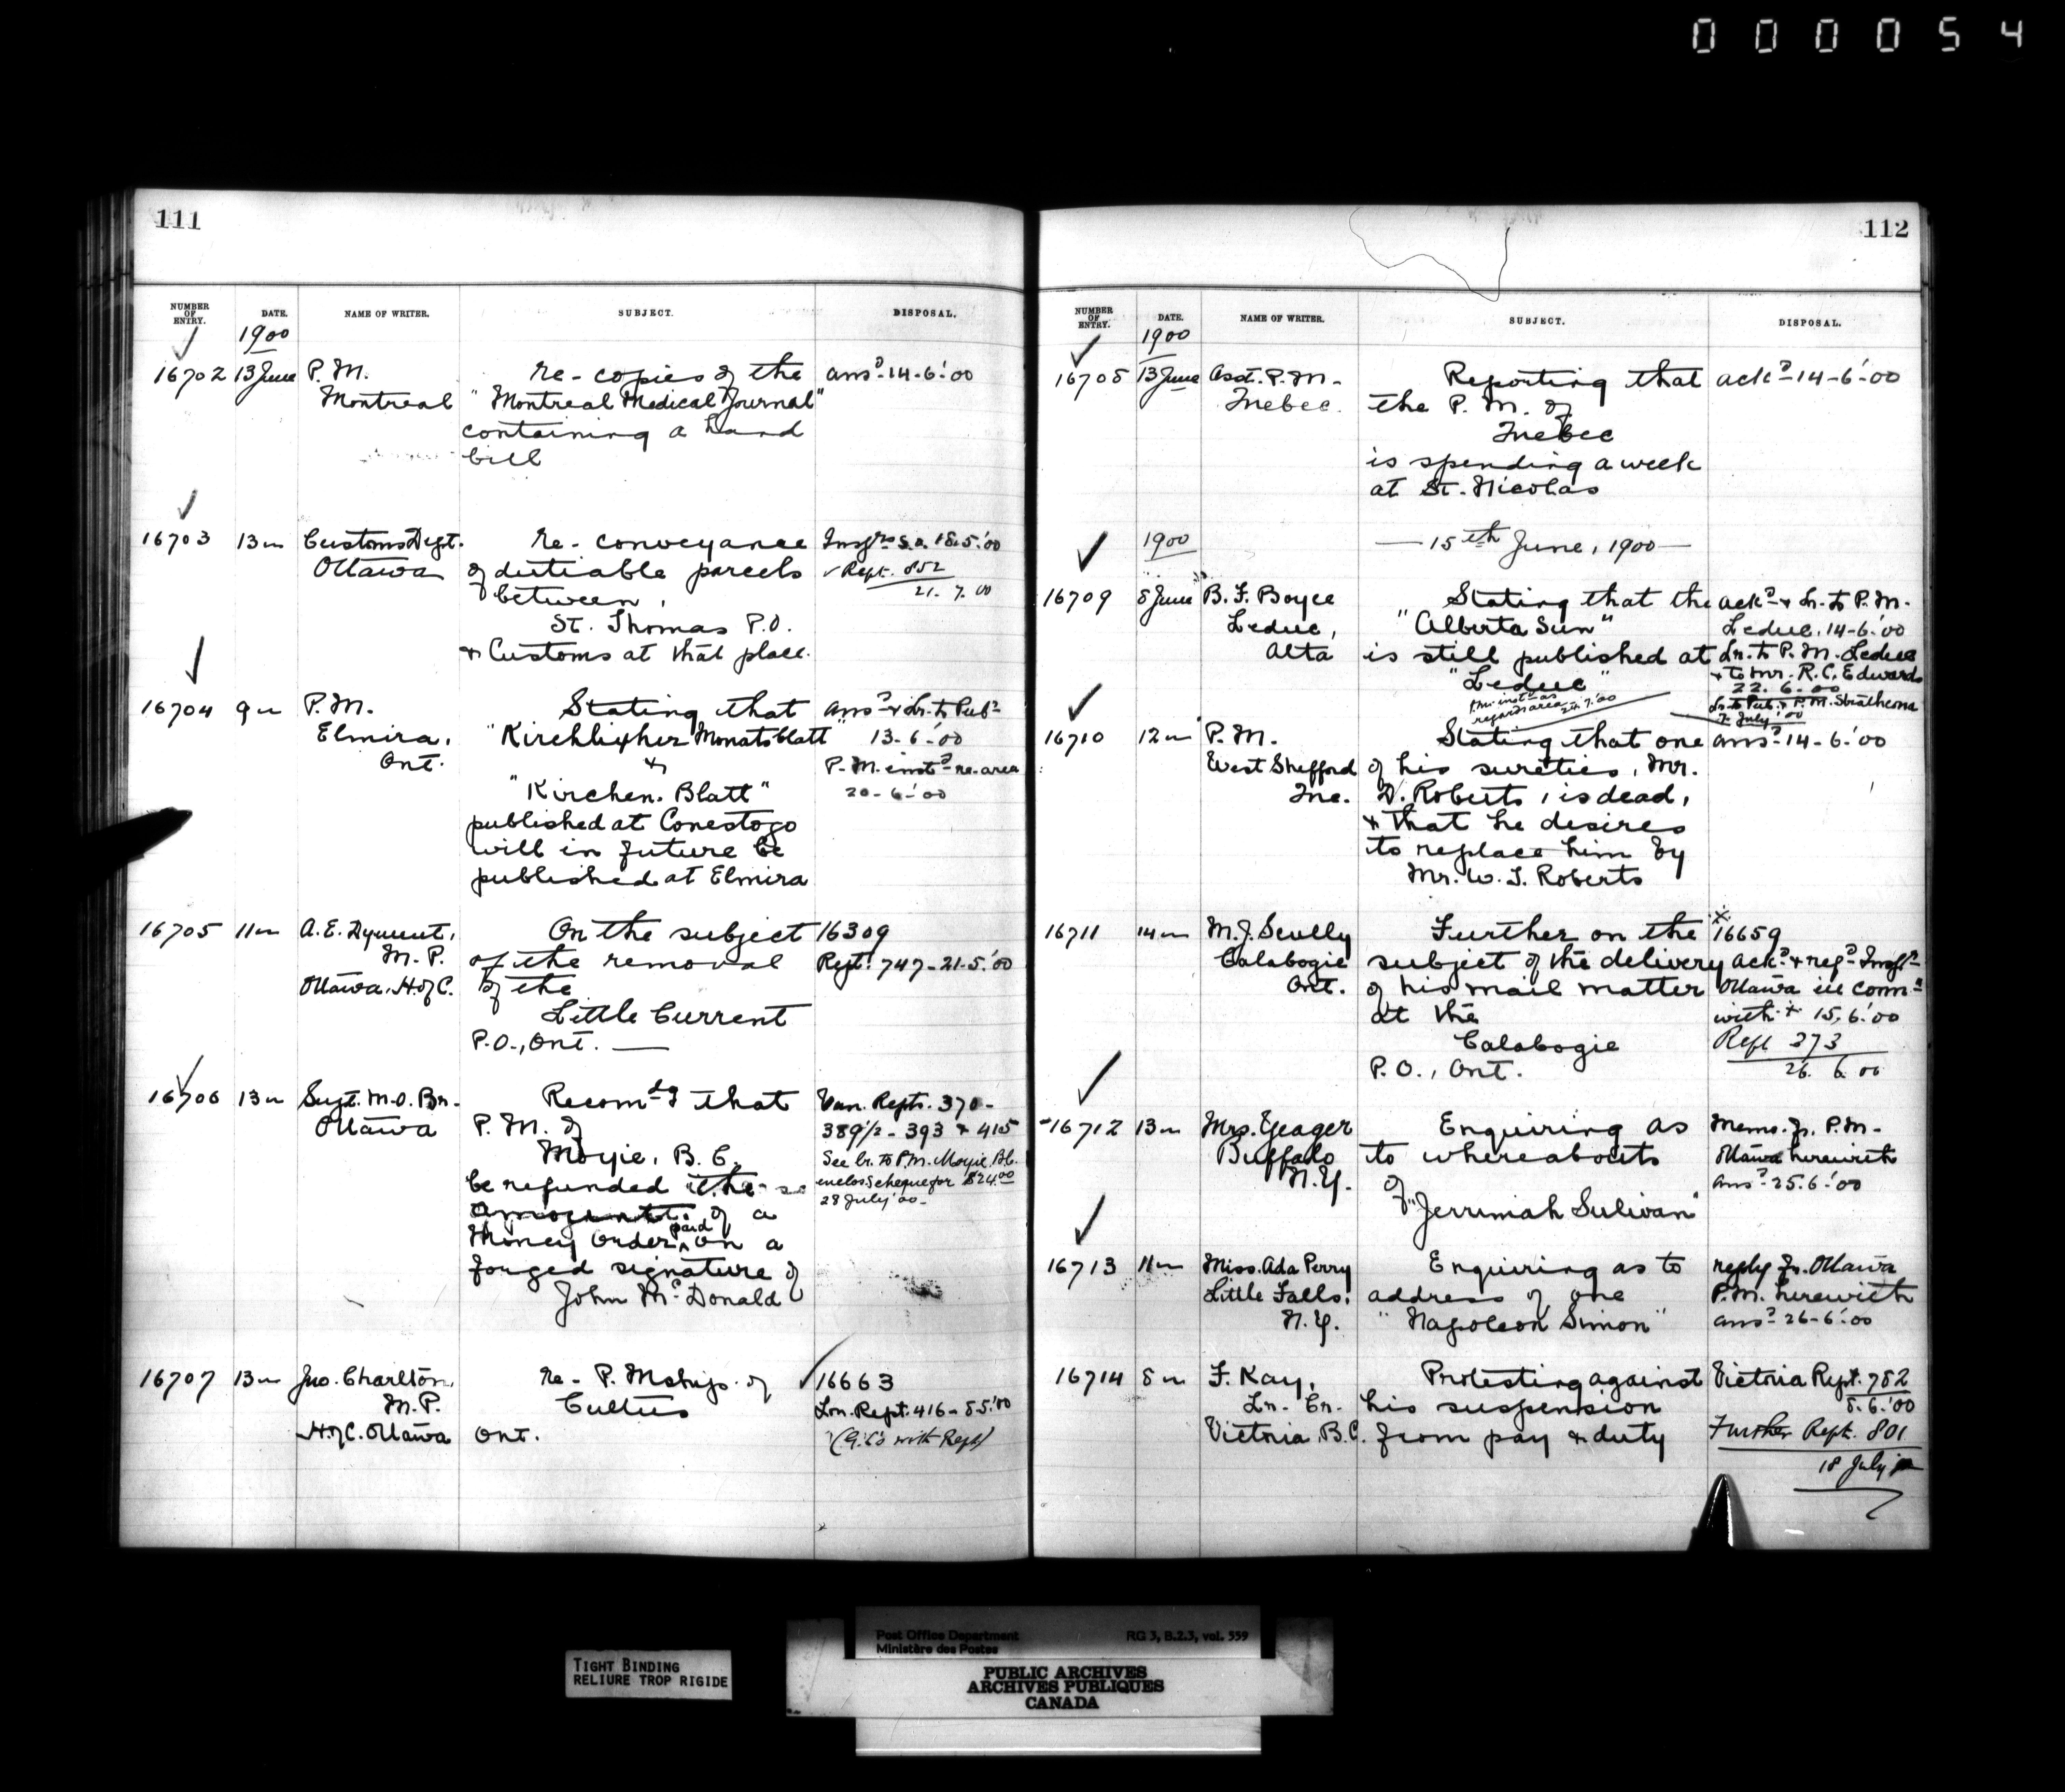 000054
111
NUMBER OF ENTRY. DATE. NAME OF WRITER. SUBJECT. DISPOSAL.
1900
16702 13 June P.M. re- copies of the ansd 14-6-'00
Montreal "Montreal Medical Journal"
containing a hand
bill
16703 13 " Customs Dept. re- conveyance
Ottawa of dutiable parcels Rept. 852
between 21. 7. 00
St. Thomas P.O.
& Customs at that place.
16704 9 " P.M. Stating that ansd & Lr. to Pubr
Elmira, "Kirchlicher Monatsblatt" 13-6-'00
Ont. & P.M. instd re. area
"Kirchen. Blatt" 20-6-'00
published at Conestogo
will in future be
published at Elmira
16705 11 " A.E. Dyment, On the subject 16309
M.P. of the removal Rept. 747-21-5-'00
Ottawa, H. of C. of the
Little Current
P.O., Ont.
16706 13 " Supt. M.O. Br. Recomdg that Van. Repts. 370-
Ottawa P.M. of 389½-393 & 415
Moyie, B.C. See lr. to P.M. Moyie, B.C.
be refunded the enclos'g cheque for $24.00
amount of a 28 July '00-
Money Order paid on a
forged signature of
John McDonald
16707 13 " Jno. Charlton, re- P. Mships of 16663
M.P. Cultus Lon. Rept. 416-8-5-'00
H. of C. Ottawa Ont. (G.6's with Rept)
112
NUMBER OF ENTRY. DATE. NAME OF WRITER. SUBJECT. DISPOSAL.
1900
16708 13 June Asst. P.M. Reporting that ackd 14-6-'00
Quebec. the P.M. of
Quebec
is spending a week
at St. Nicolas
1900 —15th June, 1900—
16709 8 June B.F. Boyce Stating that the ackd & Lr. to P.M.
Leduc, "Alberta Sun" Leduc, 14-6-'00
Alta is still published at Lr. to P.M. Leduc
"Leduc" & to Mr. R.C. Edwards
22. 6. 00
P.M. instd as Lr. to Pub. & P.M. Strathcona
regards area 7 July '00
16710 12 " P.M. Stating that one ansd 14-6-'00
West Shefford of his sureties, Mr.
Que. D. Roberts, is dead,
& that he desires
to replace him by
Mr. W.T. Roberts
16711 14 " M.J. Scully Further on the x 16659
Calabogie subject of the delivery ackd & refd Inspr
Ont. of his mail matter Ottawa in connn
at the with x 15-6-'00
Calabogie Rept 373
P.O., Ont. 26. 6. 00
16712 13 " Mrs. Yeager Enquiring as Memo. fr. P.M.
Buffalo to whereabouts Ottawa herewith
N.Y. of ansd 25-6-'00
"Jerrimiah Sulivan"
16713 11 " Miss. Ada Perry Enquiring as to reply fr. Ottawa
Little Falls, address of one P.M. herewith
N.Y. "Napoleon Simon" ansd 26-6-'00
16714 8 " F. Kay, Protesting against Victoria Rept. 782
Lr. Cr. his suspension 8.6.'00
Victoria, B.C. from pay & duty Further Rept. 801
18 July
TIGHT BINDING
RELIURE TROP RIGIDE
Post Office Department RG 3, B.2.3, vol. 559
Ministère des Postes
PUBLIC ARCHIVES
ARCHIVES PUBLIQUES
CANADA